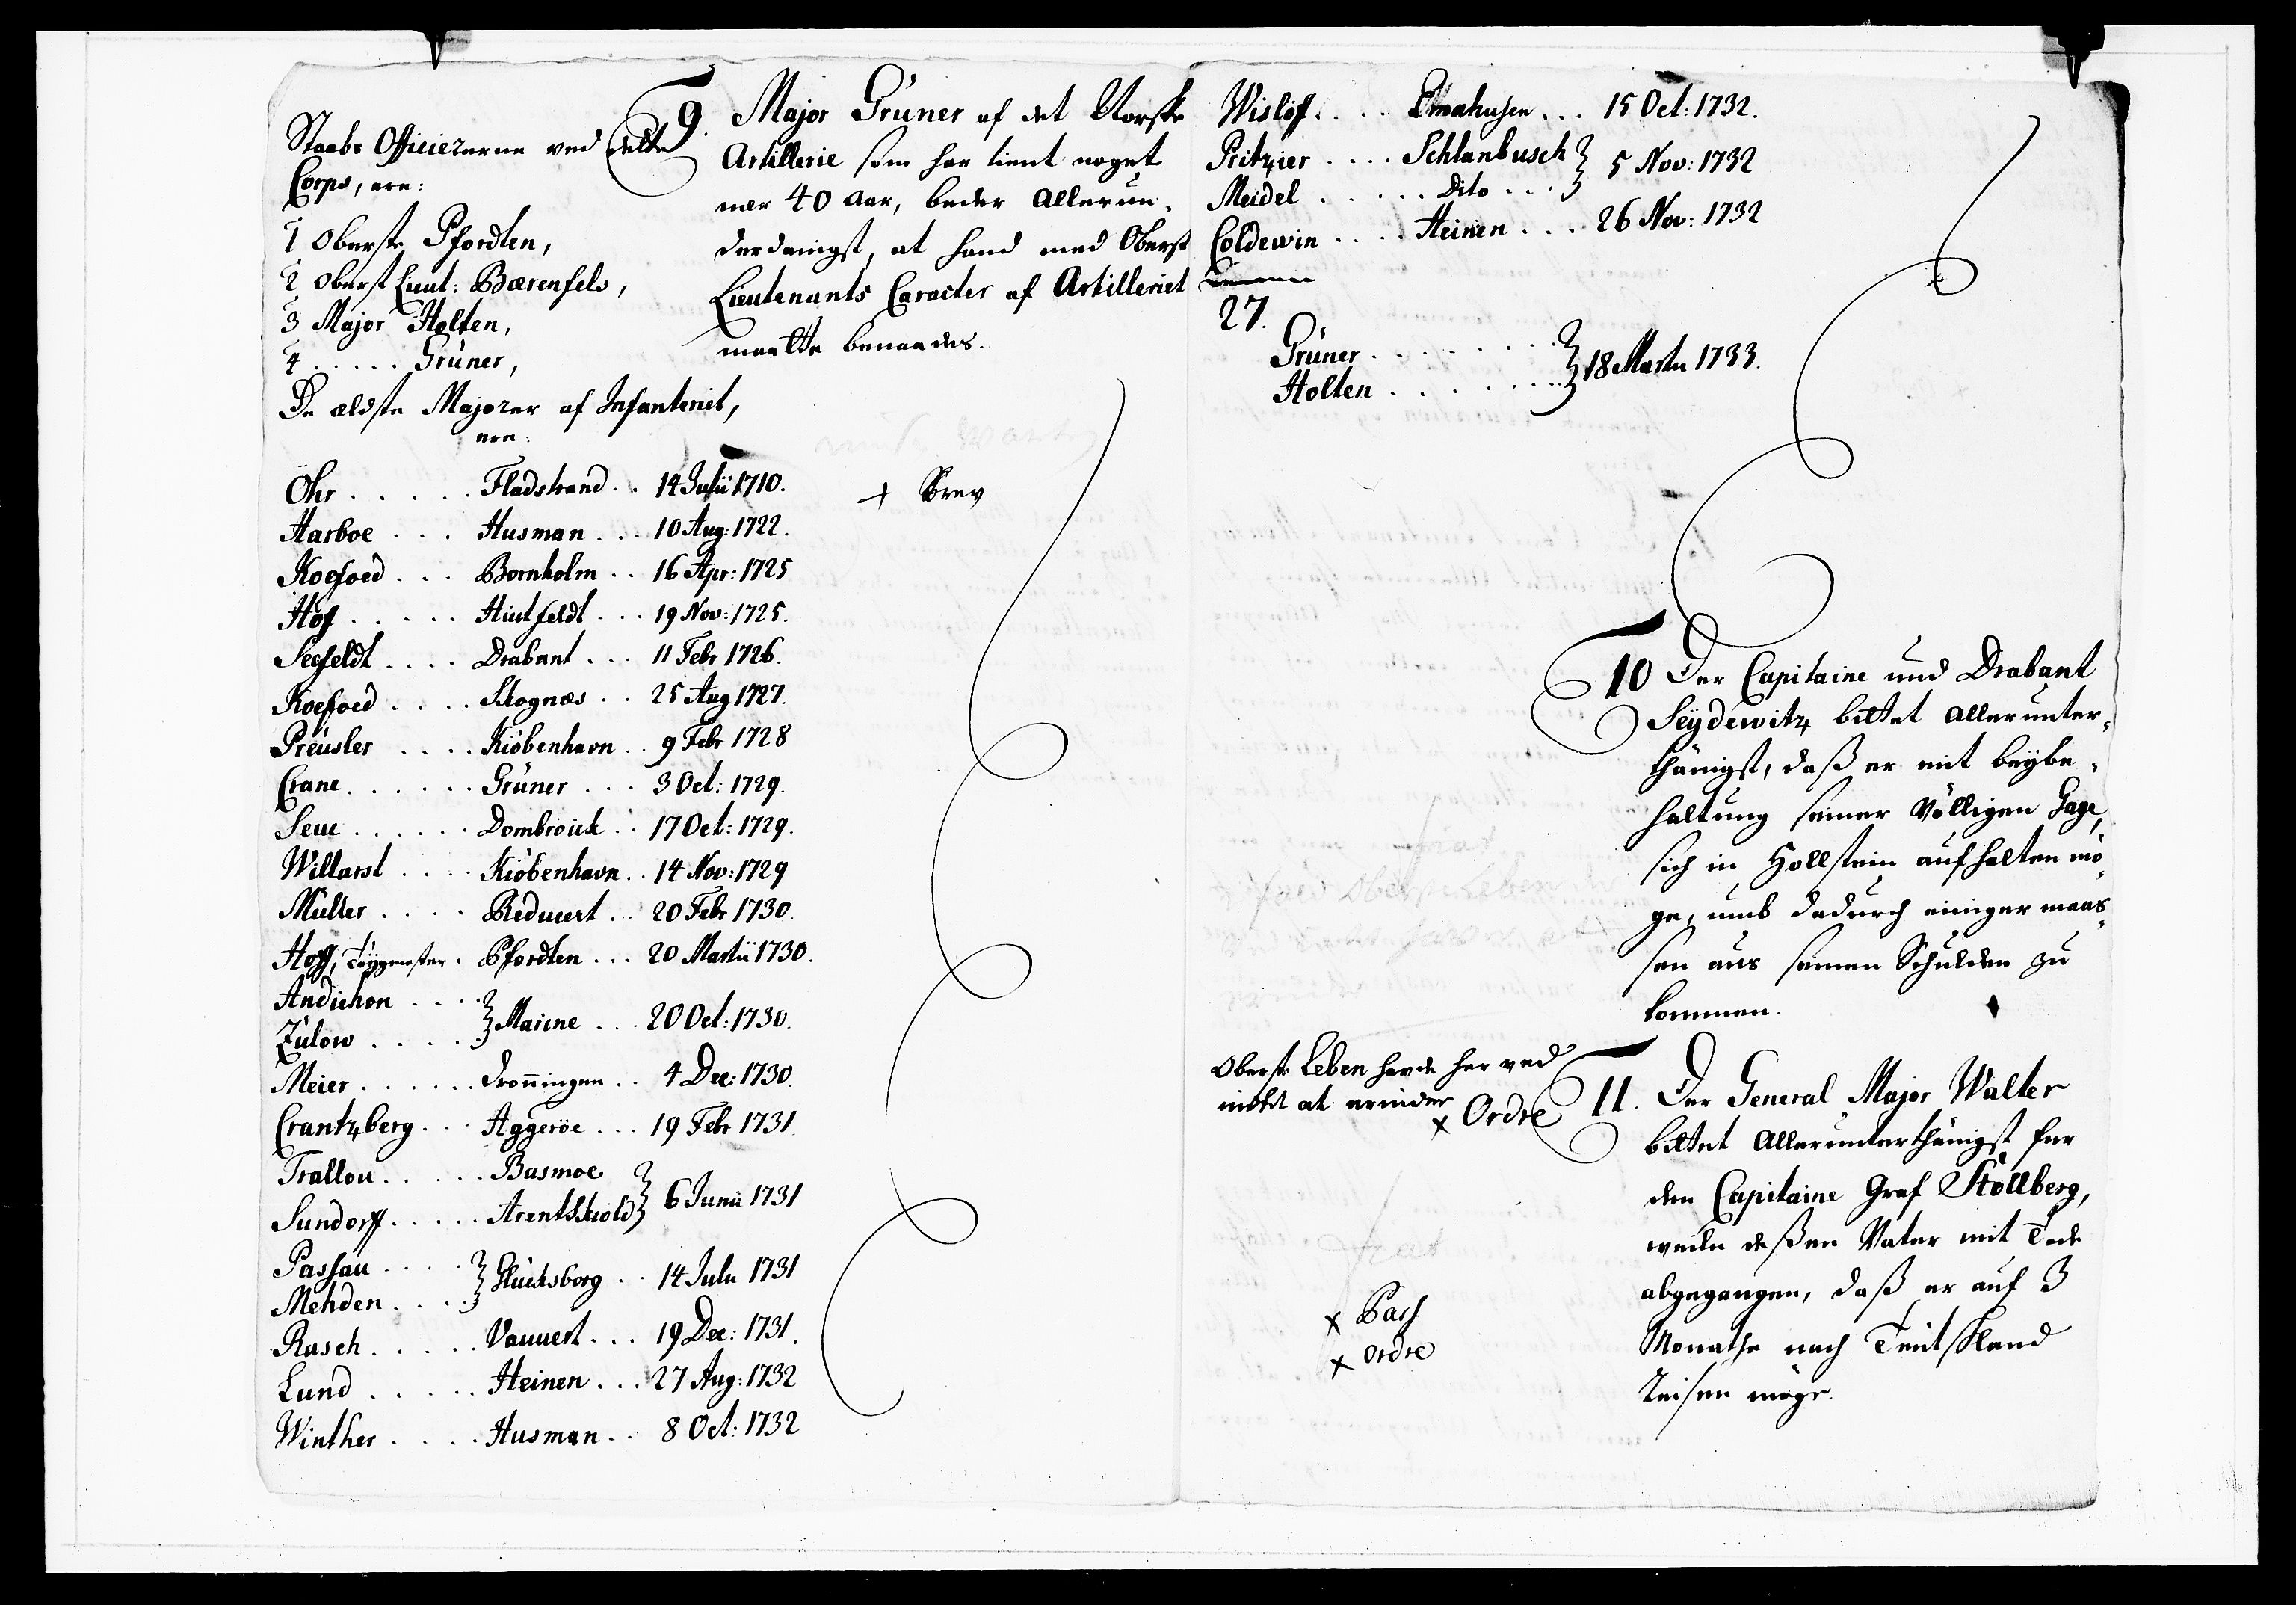 Staabs Officiererne ved dette
Corps, ere:
1 Oberste Pfordten,
2 Oberst Lieut: Bærenfels,
3 Major Holten,
4 ..... Grüner,
De ældste Majorer af Infanteriet,
ere:
Öhr ..... Fladstrand .. 14 Julii 1710.
Harboe ... Husman ... 10 Aug: 1722.
Koefoed ... Bornholm .. 16 Apr: 1725
Hof ..... Huitfeldt ... 19 Nov: 1725.
Seefeldt .... Drabant ... 11 Febr 1726.
Koefoed .... Skognæs .. 25 Aug 1727.
Preusler .... Kiöbenhavn .. 9 Febr 1728
Crane ...... Grüner ... 3 Oct: 1729.
Seue ...... Dombroick .. 17 Oct: 1729.
Willarst .... Kiöbenhavn .. 14 Nov: 1729
Müller .... Reduceert .. 20 Febr 1730.
Hoff, Töygmester . Pfordten ... 20 Martii 1730.
Andichon ....
Zülow ..... Marine ... 20 Oct: 1730.
Meier ...... Dronningen .. 4 Dec: 1730.
Crantzberg ... Aggeröe ... 19 Febr 1731.
Trallou ..... Basmoe
Sundorff ..... Arentskiold 6 Junii 1731
Passau ....
Mehden .... Glücksborg .. 14 Julii 1731
Rasch ..... Vauvert ... 19 Dec: 1731.
Lund ..... Heinen ... 27 Aug: 1732
Winther .... Husman .. 8 Oct: 1732
9. Major Grüner af det Norske
Artillerie som har tient noget
nær 40 Aar, beder allerun-
derdanigst, at hand med Oberst
Lieutenants Caracter af Artilleriet
maatte benaades.
+ Brev
Wislöff .... Emahusen ... 15 Oct: 1732.
Pritzier .... Schlanbusch
Meidel ...... Dito ... 5 Nov: 1732
Coldewin .... Heinen ... 26 Nov: 1732
27.
Grüner ........
Holten ........ 18 Martii 1733.
10 Der Capitaine und Drabant
Seÿdewitz bittet allerunter-
thänigst, daß er mit beÿbe-
haltung seiner völligen Gage,
sich in Hollstein aufhalten mö-
ge, umb dadurch einiger maas-
sen aus seinen Schulden zu
kommen.
Oberste Leben havde her ved
intet at erindre
x Ordre
11. Der General Major Walter
bittet allerunterthänigst fur
den Capitaine Graf Stöllberg,
weiln deßen Vater mit Tode
abgegangen, daß er auf 3
Monathe nach Teutskland
Reisen möge.
x Pass
x ordre